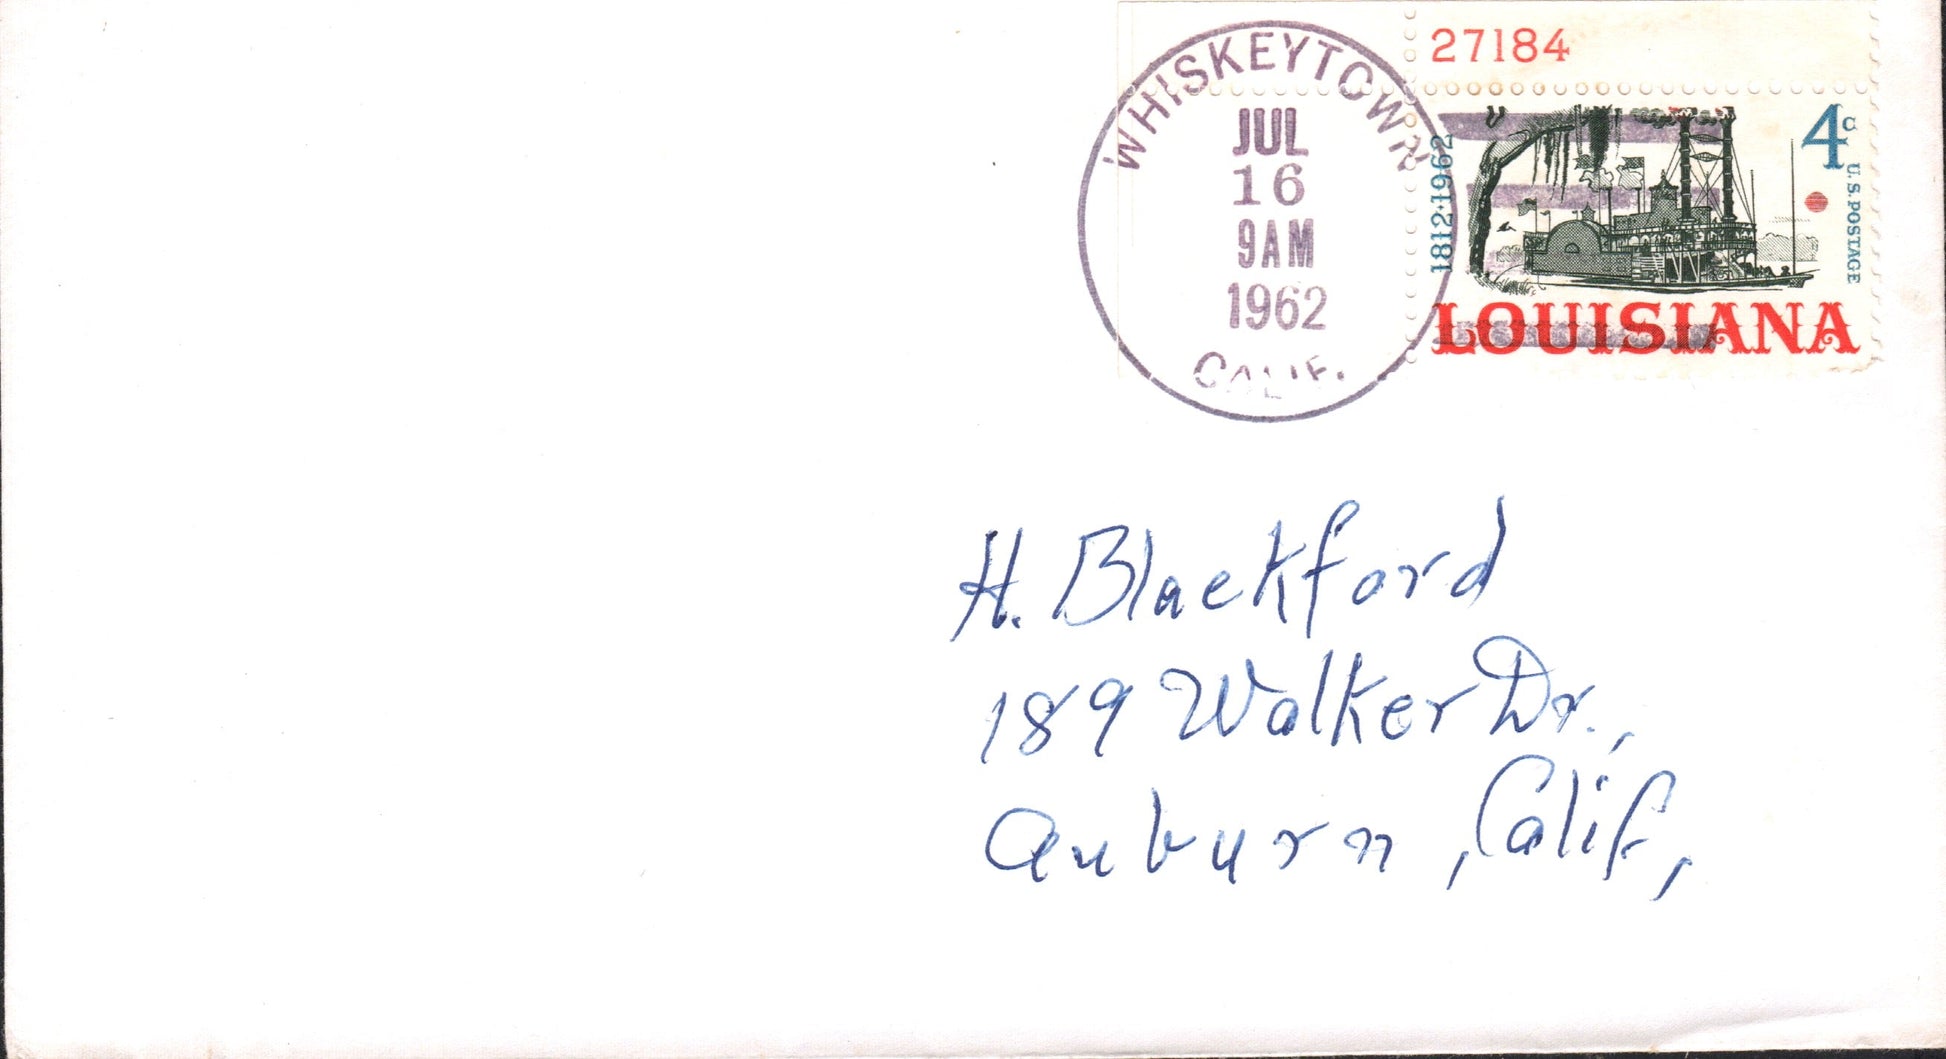 WHISKEYTOWN
JUL
16
9AM
1962
CALIF.
27184
4c
U.S. POSTAGE
1812·1962
LOUISIANA
H. Blackford
189 Walker Dr.,
Auburn, Calif,